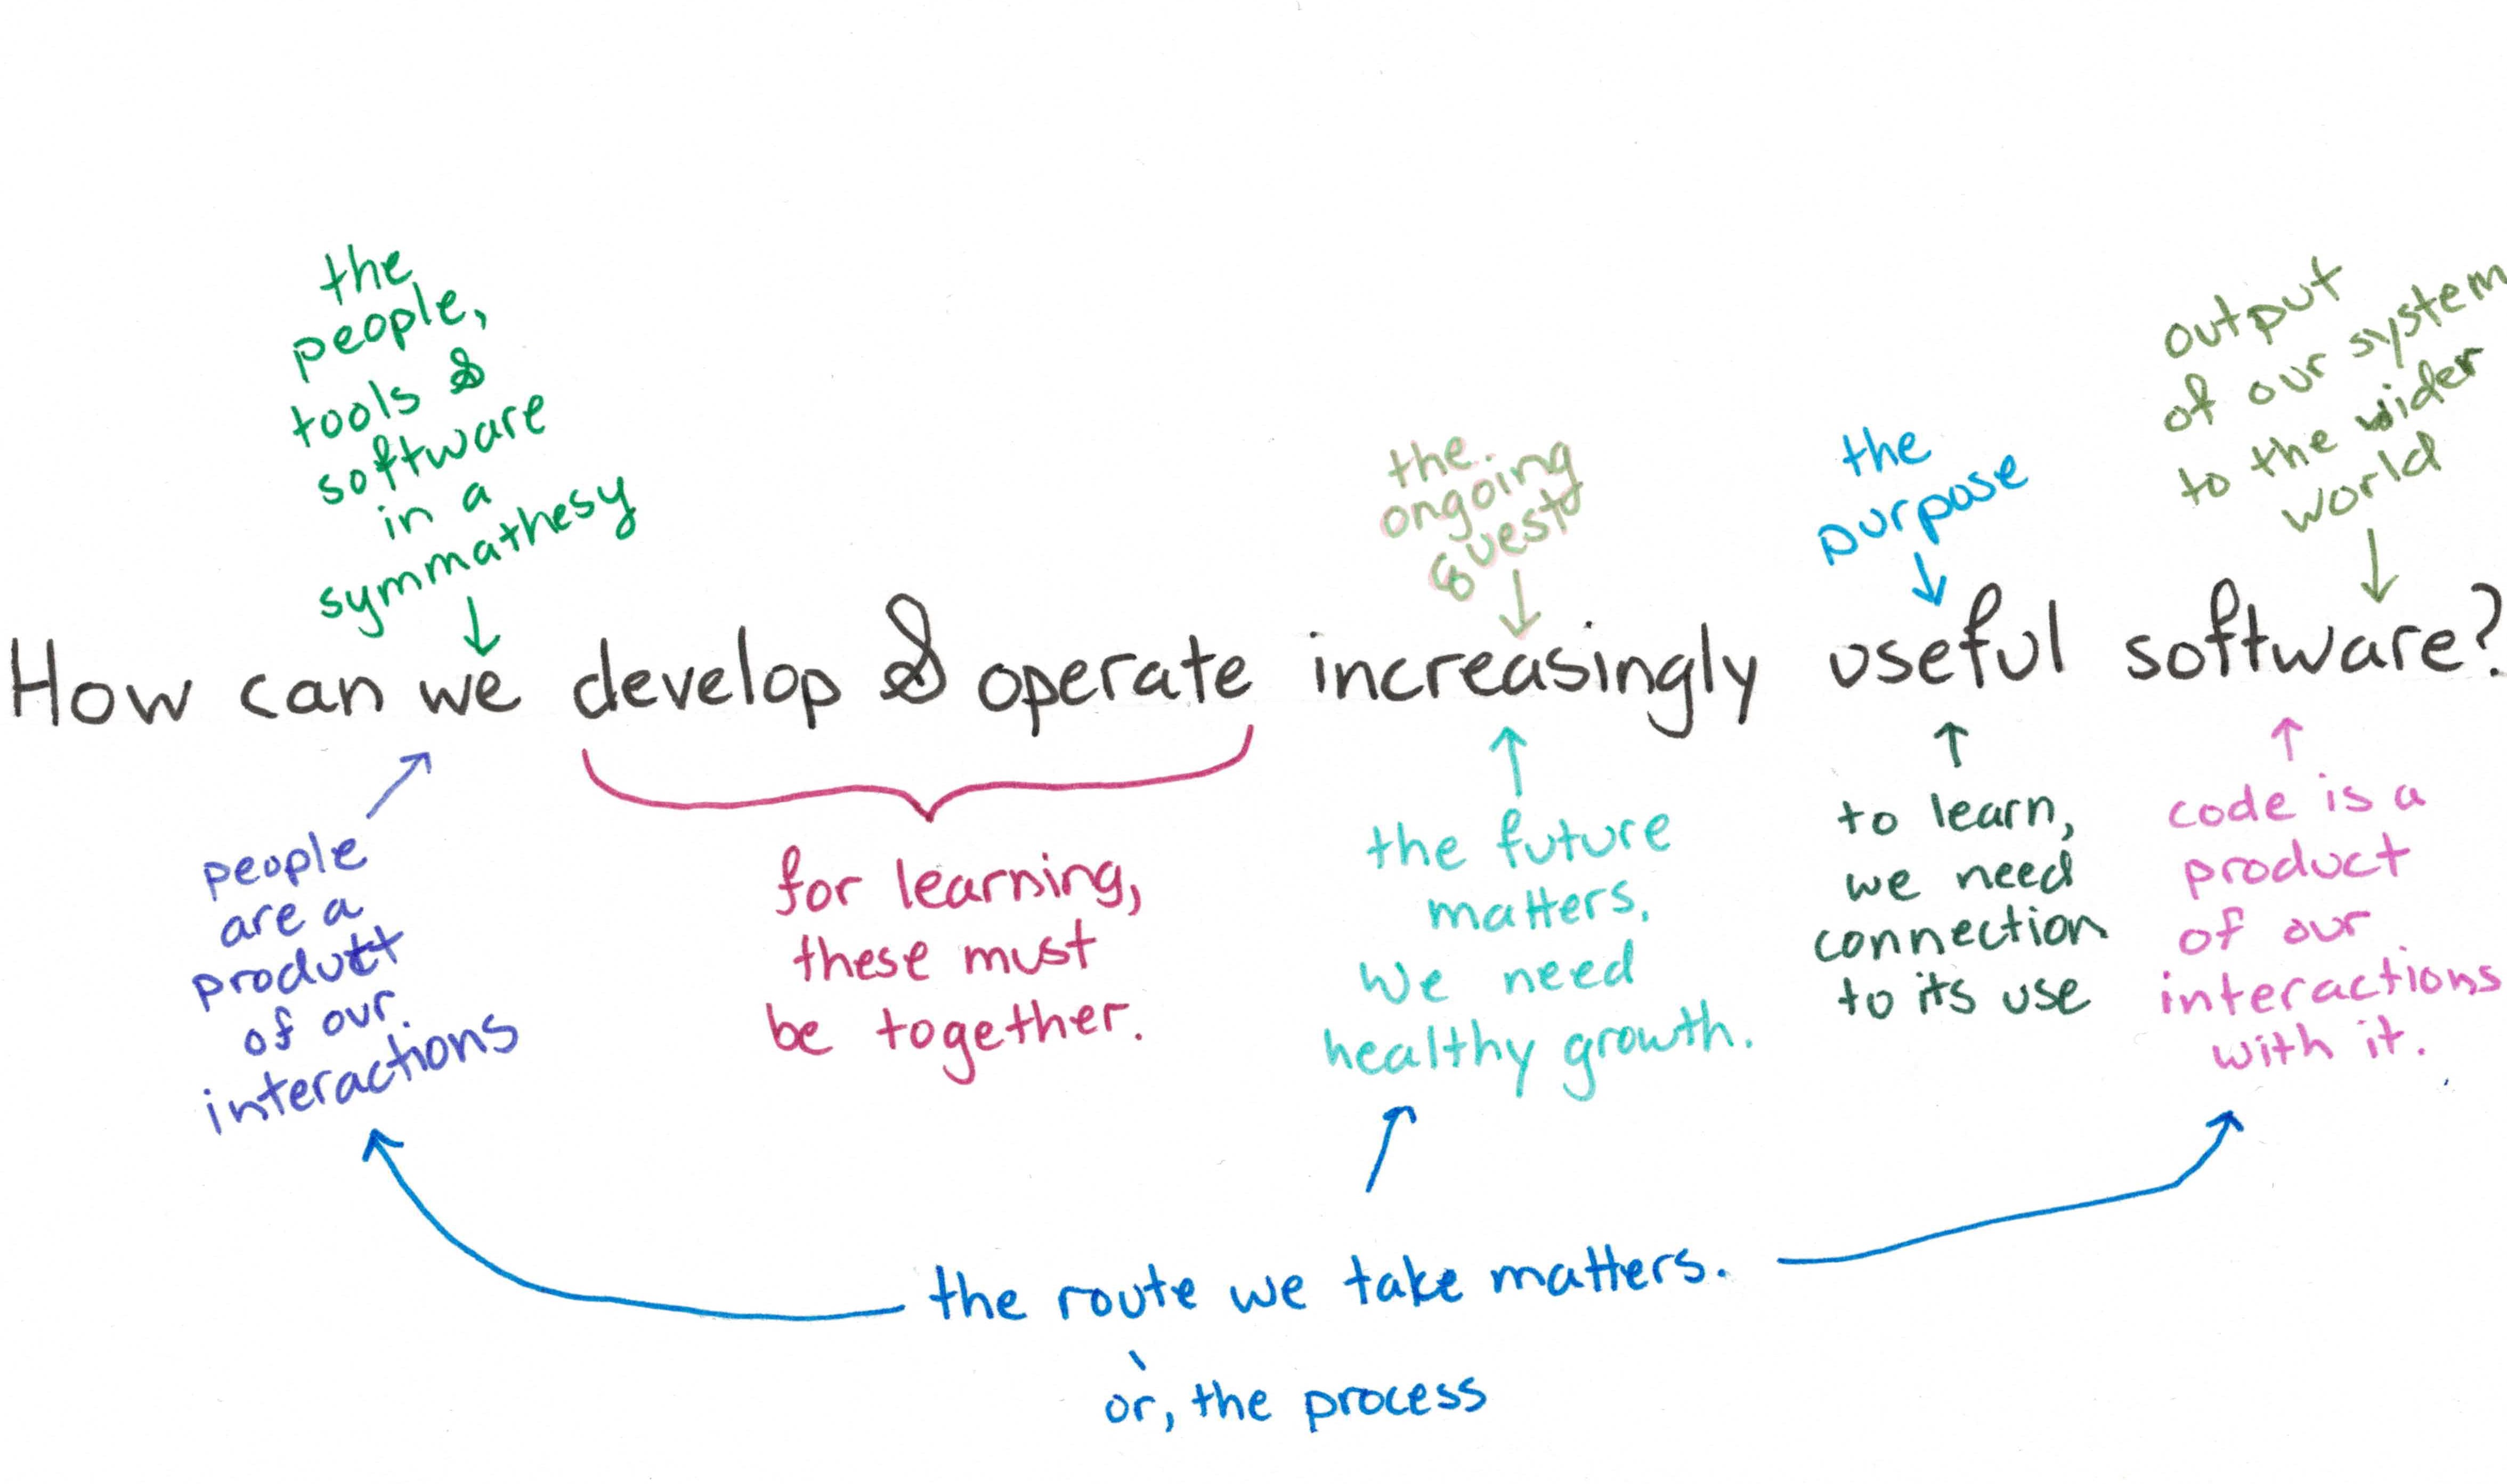 the
people,
tools &
software
in a
symmathesy
the
ongoing
Quest
the
purpose
output
of our system
to the wider
world
How can we develop & operate increasingly useful software?
people
are a
product
of our
interactions
for learning,
these must
be together.
the future
matters.
We need
healthy growth.
to learn,
we need
connection
to its use
code is a
product
of our
interactions
with it.
the route we take matters.
or, the process